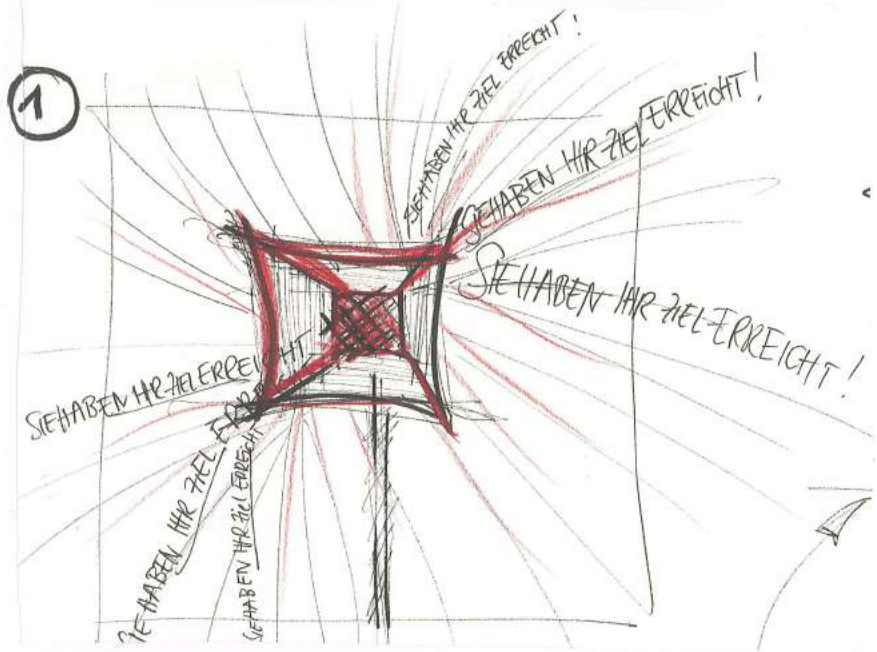 1
SIE HABEN IHR ZIEL ERREICHT!
SIE HABEN IHR ZIEL ERREICHT!
SIE HABEN IHR ZIEL ERREICHT!
SIE HABEN IHR ZIEL ERREICHT
SIE HABEN IHR ZIEL
SIE HABEN IHR ZIEL ERREICHT